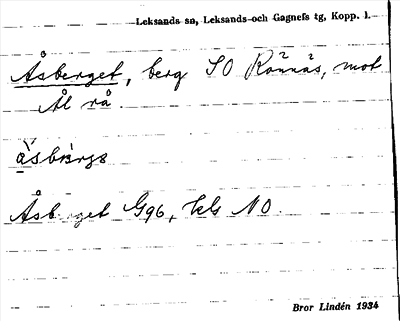 Leksands sn, Leksands- och Gagnefs tg, Kopp. l.
Åsberget, berg SO Rönnäs, mot
Ål rå.
Åsberget G96, kls NO.
Bror Lindén 1934